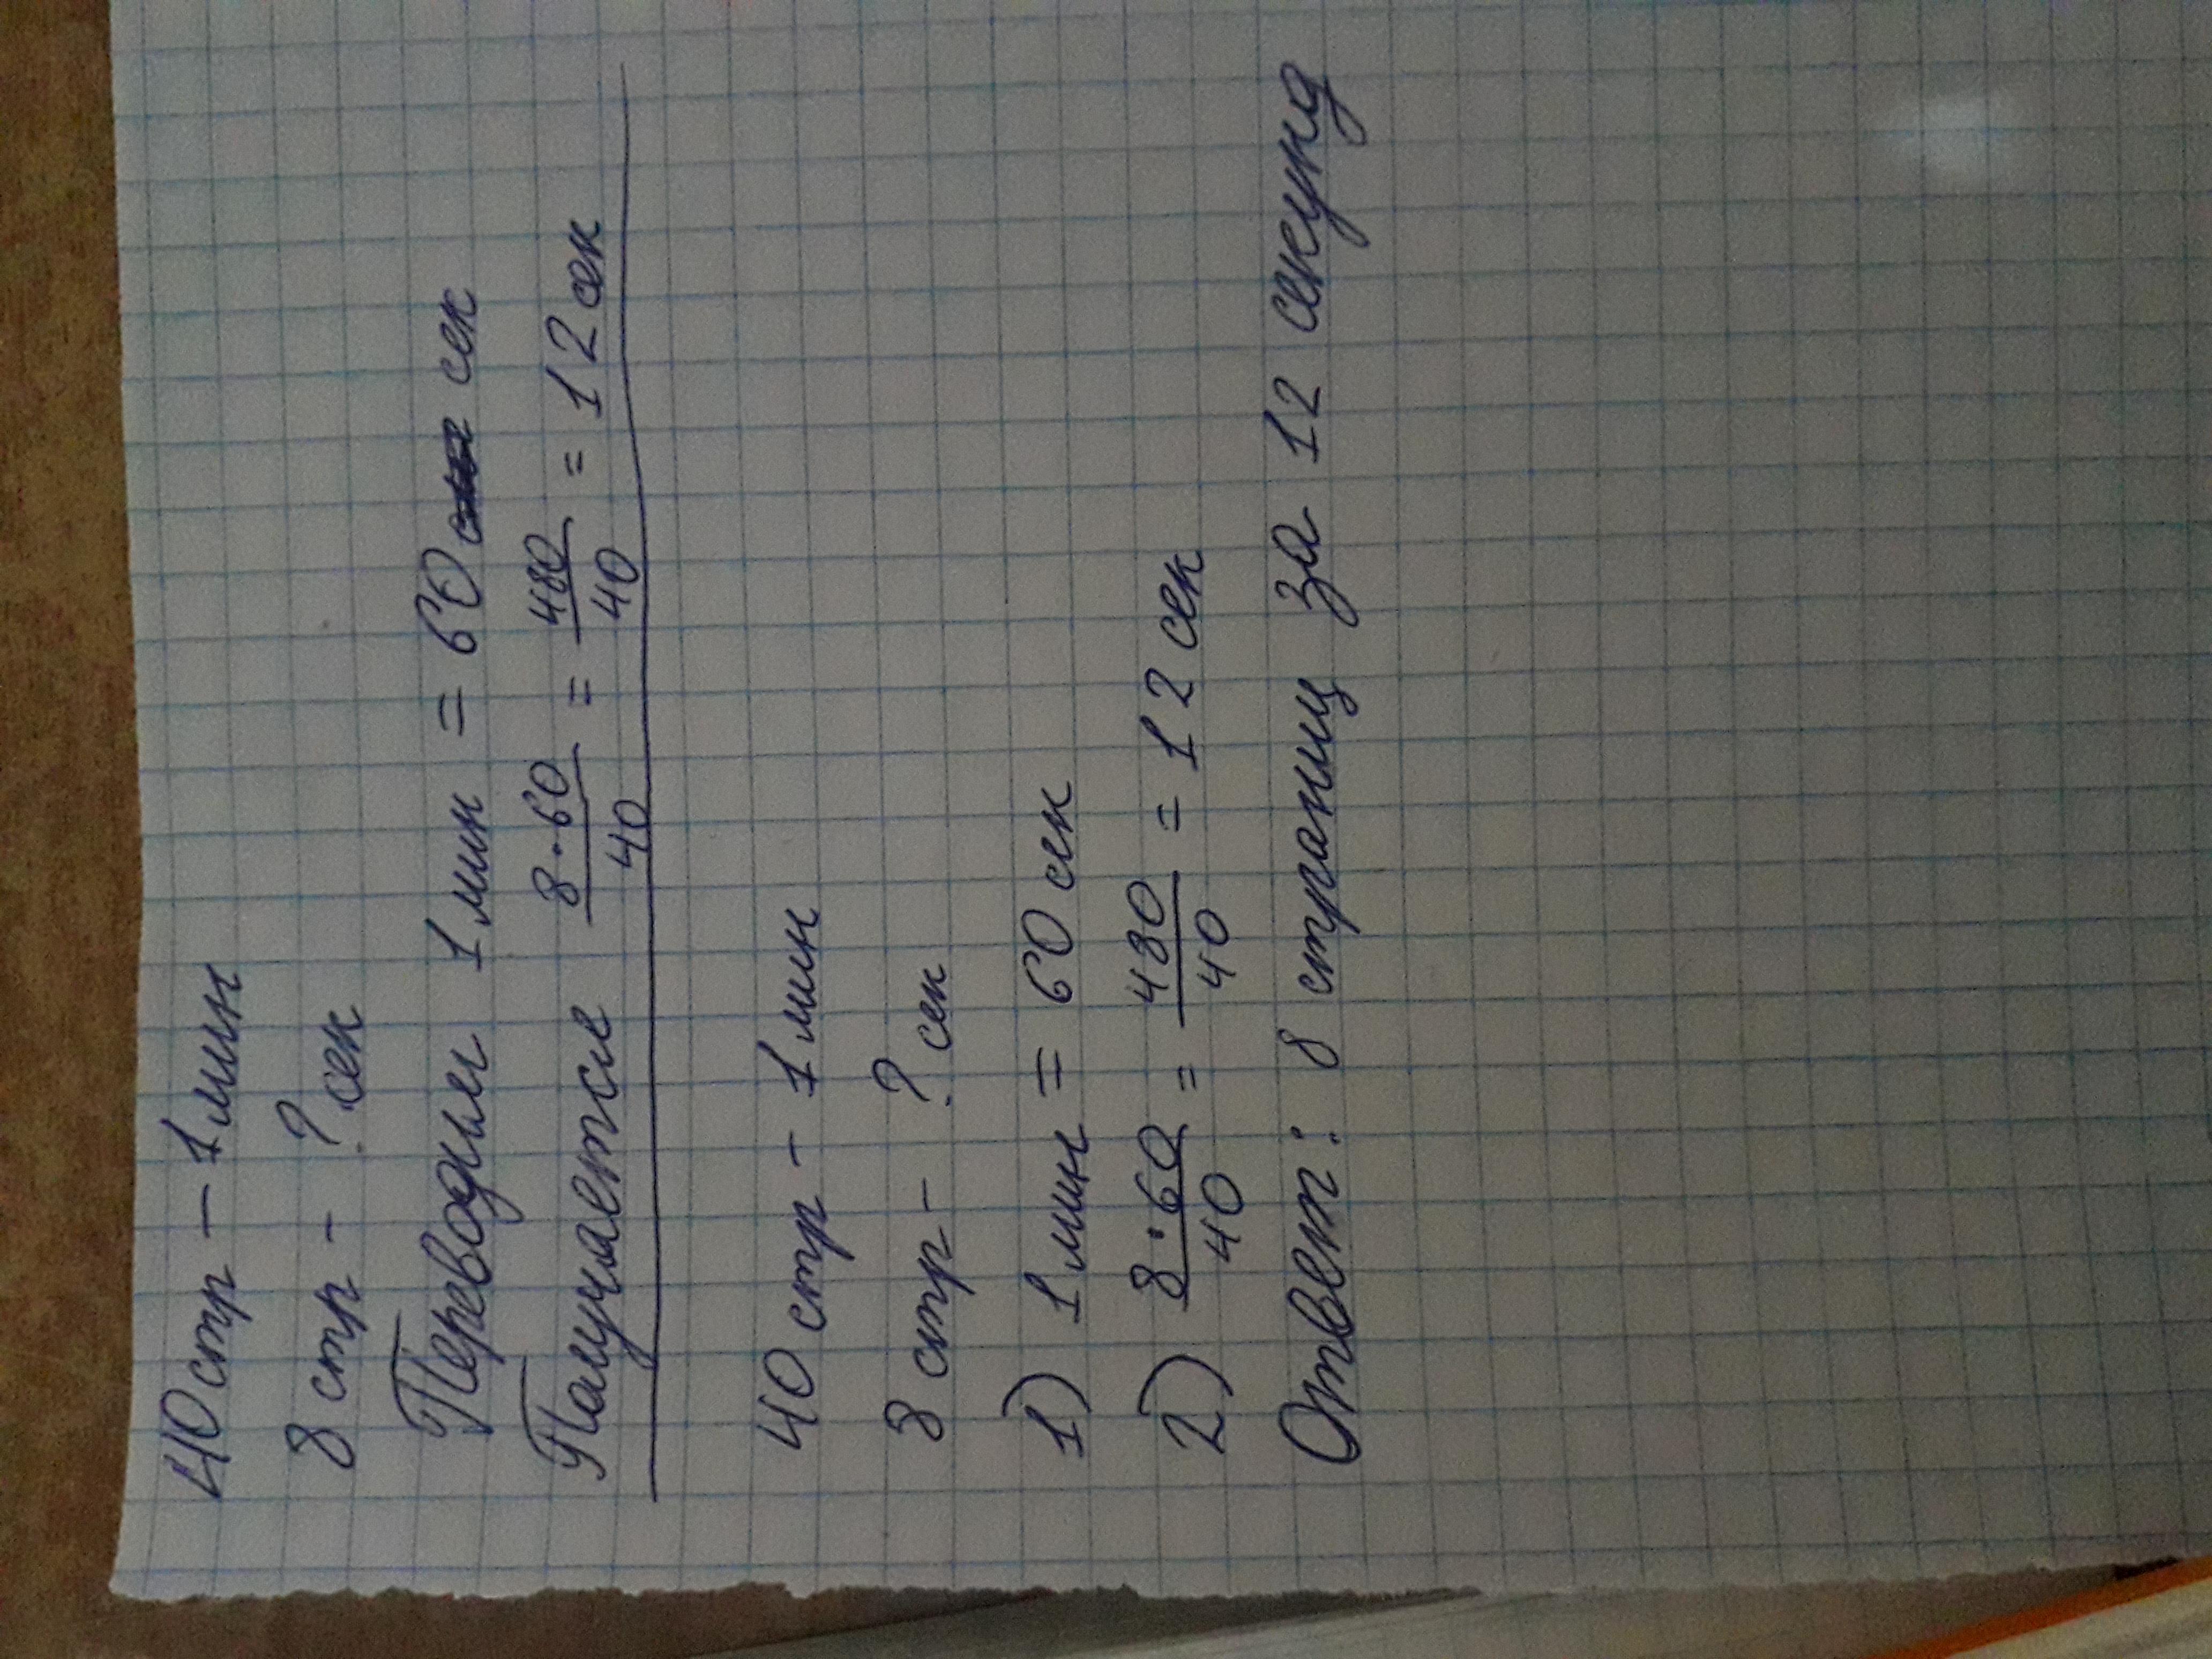 40 стр – 1 мин
8 стр - ? сек
Переводим 1 мин = 60 сек
Получается 8·60/40 = 480/40 = 12 сек
40 стр - 1 мин
8 стр - ? сек
1) 1 мин = 60 сек
2) 8·60/40 = 480/40 = 12 сек
Ответ: 8 страниц за 12 секунд